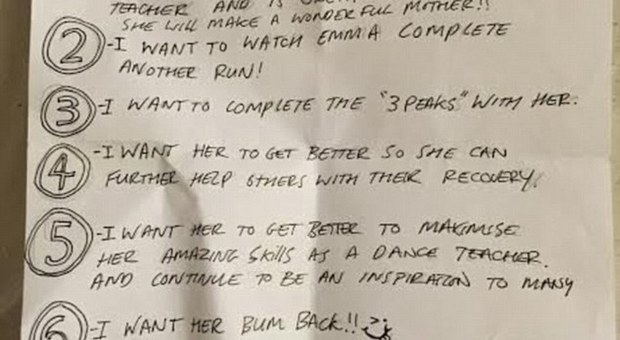 TEACHER AND IS
SHE WILL MAKE A WONDERFUL MOTHER!!
2 -I WANT TO WATCH EMMA COMPLETE
ANOTHER RUN!
3 -I WANT TO COMPLETE THE "3 PEAKS" WITH HER.
4 -I WANT HER TO GET BETTER SO SHE CAN
FURTHER HELP OTHERS WITH THEIR RECOVERY.
5 -I WANT HER TO GET BETTER TO MAXIMISE
HER AMAZING SKILLS AS A DANCE TEACHER.
AND CONTINUE TO BE AN INSPIRATION TO MANY
6 -I WANT HER BUM BACK!!